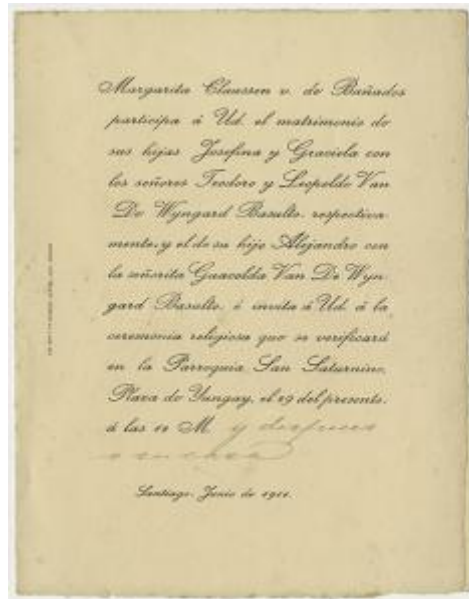 Margarita Claussen v. de Bañados
participa á Ud. el matrimonio de
sus hijas Josefina y Graciela con
los señores Teodoro y Leopoldo Van
De Wyngard Basulto, respectiva-
mente, y el de su hijo Alejandro con
la señorita Guacolda Van De Wyn-
gard Basulto, é invita á Ud. á la
ceremonia religiosa que se verificará
en la Parroquia San Saturnino,
Plaza de Yungay, el 29 del presente,
á las 11 M. y despues
a su casa
Santiago, Junio de 1911.